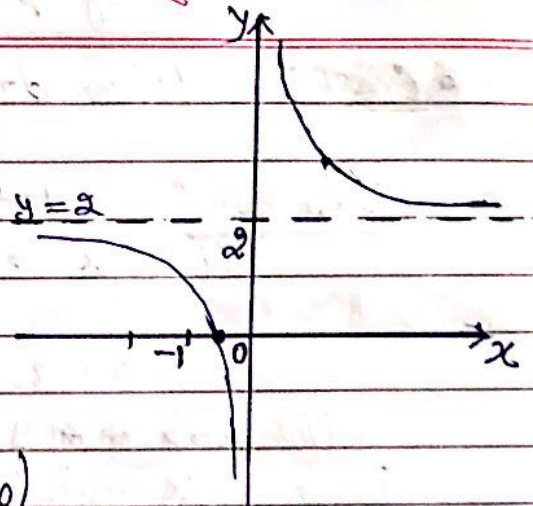 y
y = 2
2
-1
0
x
0)